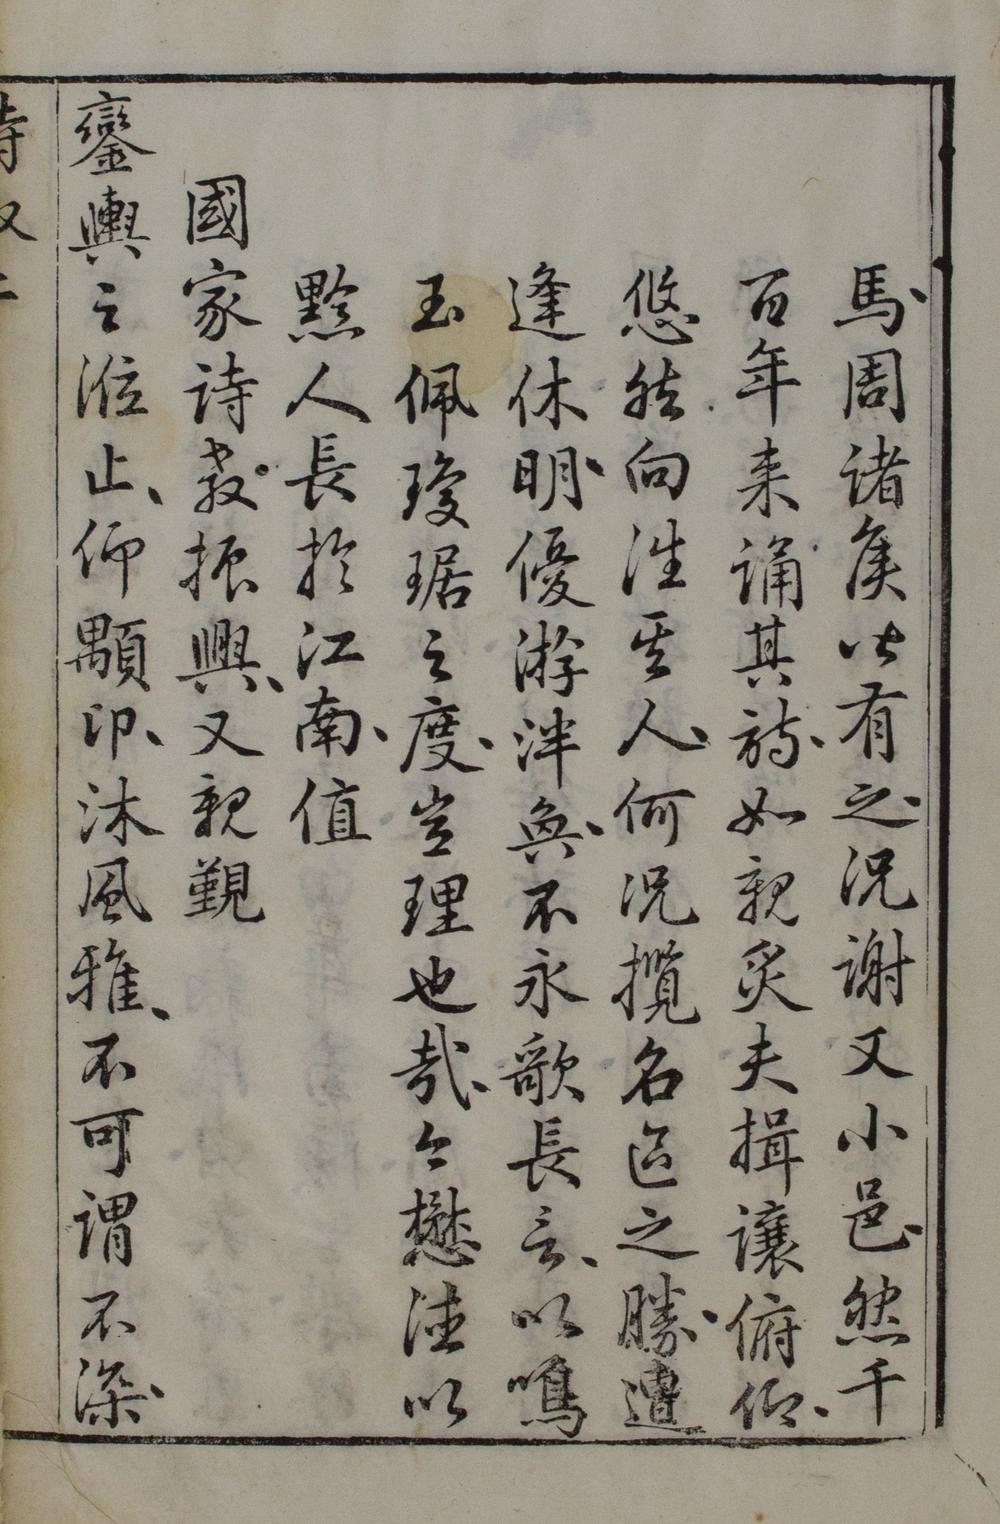 馬周諸矦皆有之况謝又小邑然千
百年来誦其詩如親炙夫揖讓俯仰
悠然向往其人何况攬名區之勝遭
逢休明優游泮奐不永歌長言以鳴
玉佩瓊琚之度豈理也哉今懋
黔人長於江南值
國家詩教振興又親觐
鑾輿之涖止仰顒卬沐風雅不可謂不深